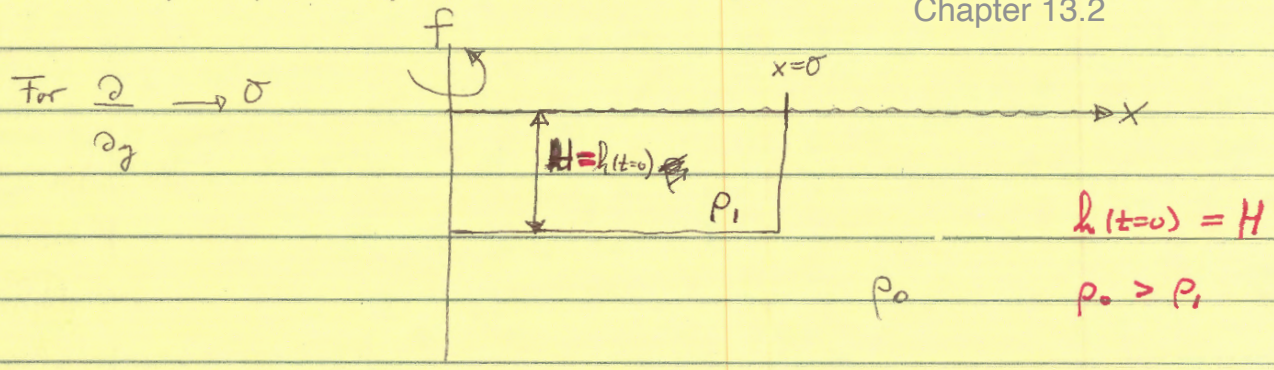 Chapter 13.2
f
For ∂/∂y → 0
x=0
x
H = h(t=0)
ρ₁
h(t=0) = H
ρ₀
ρ₀ > ρ₁